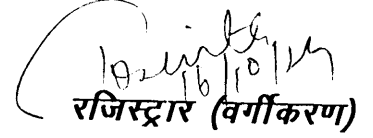 16/10/24
रजिस्ट्रार (वर्गीकरण)